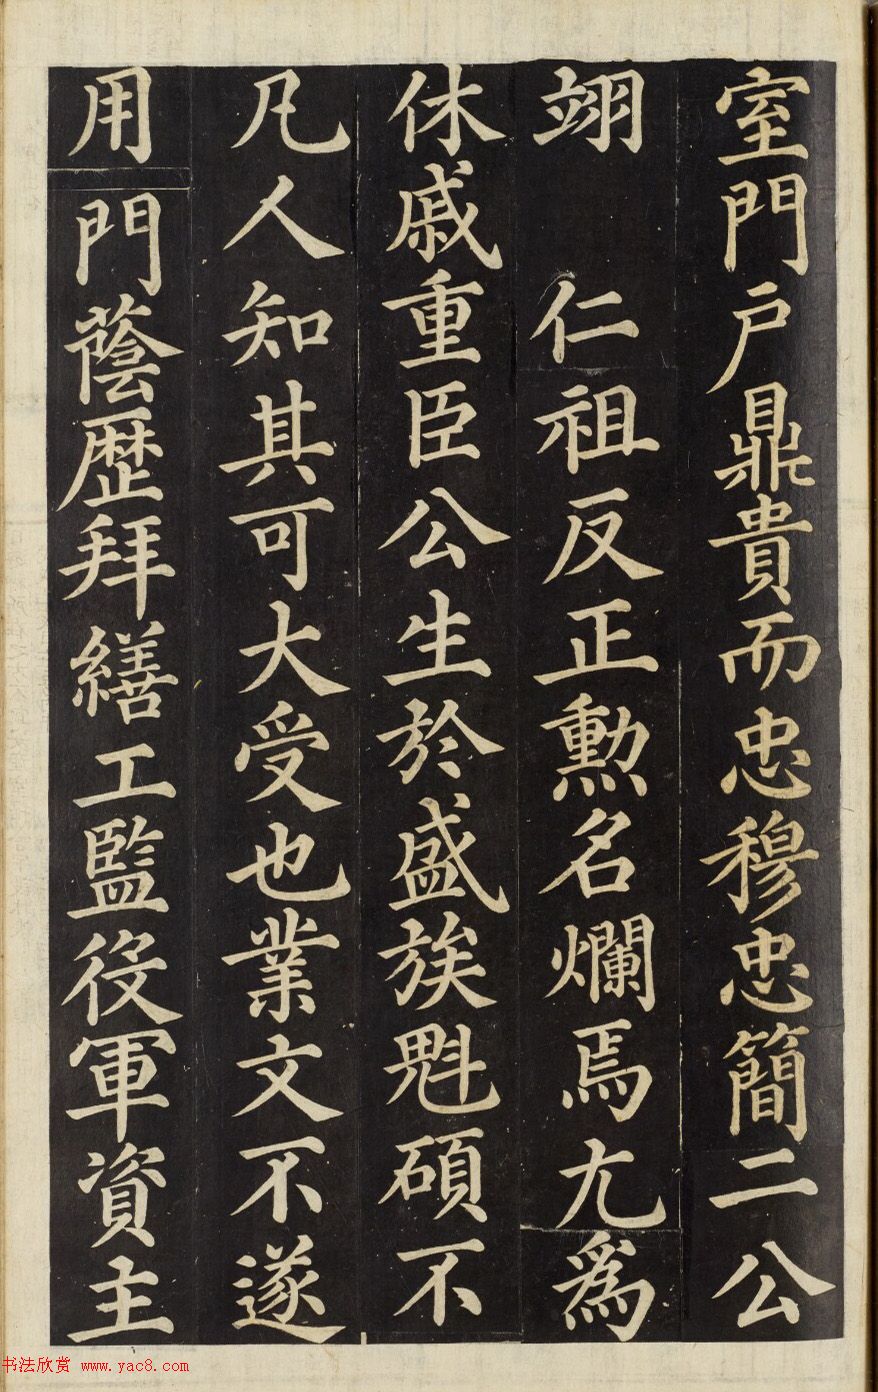 室門戶鼎貴而忠穆忠簡二公
翊 仁祖反正勲名爛焉尤爲
休戚重臣公生於盛族魁碩不
凡人知其可大受也業文不遂
用門蔭歷拜繕工監役軍資主
书法欣赏 www.yac8.com